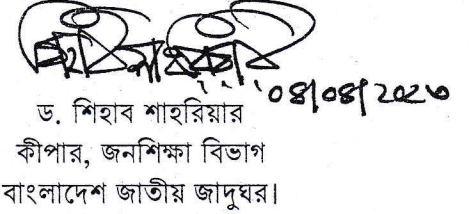 ০৪/০৪/২০২৩
ড. শিহাব শাহরিয়ার
কীপার, জনশিক্ষা বিভাগ
বাংলাদেশ জাতীয় জাদুঘর।